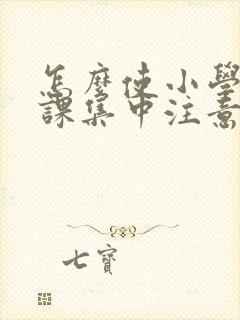 怎麼使小學
課集中注意
七寶